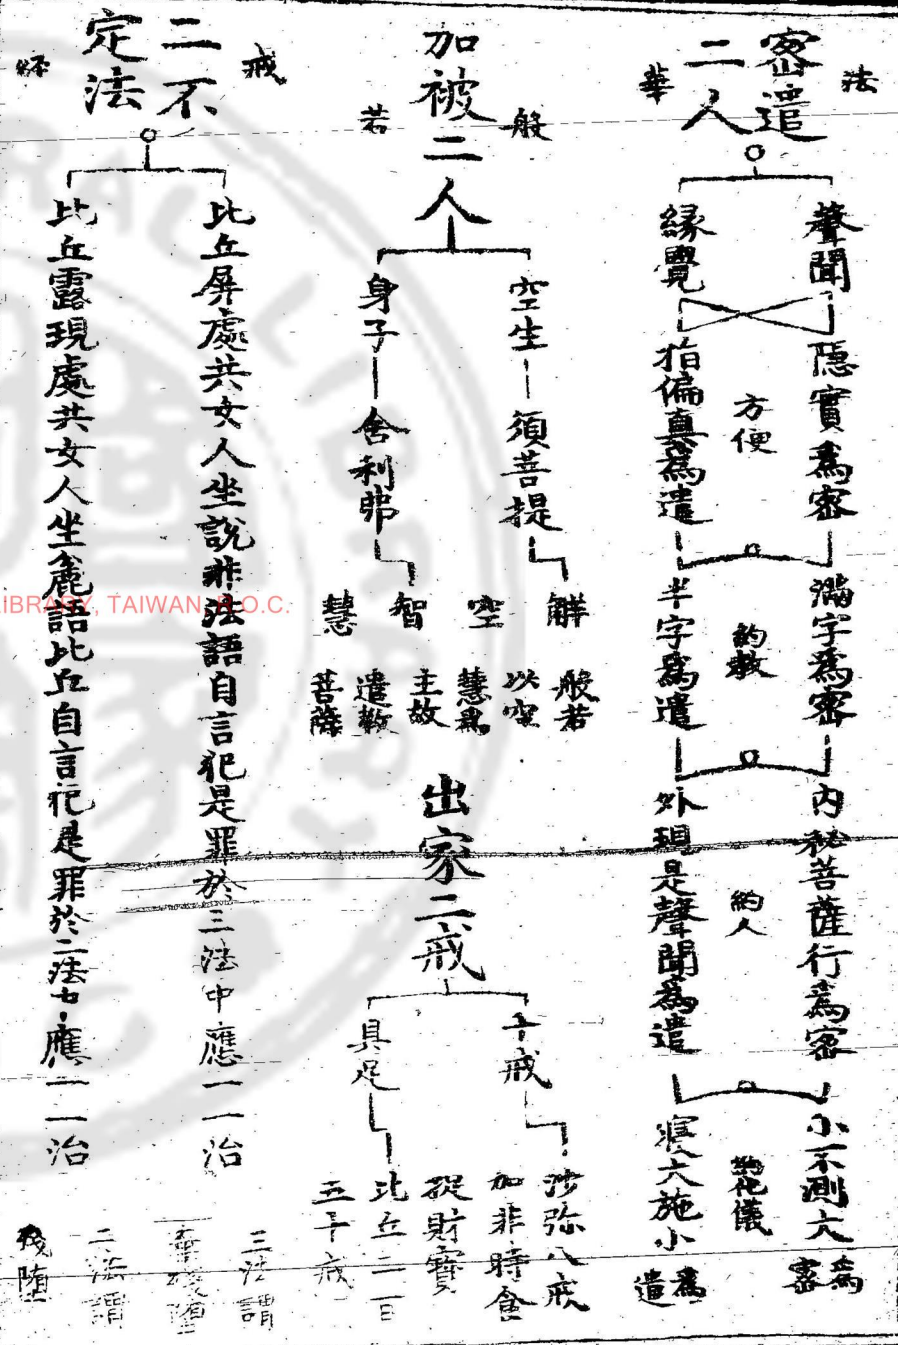 法華
密遣二人
聲聞
緣覺
隱實為密
方便
指偏真為遣
滿字為密
約教
半字為遣
內秘菩薩行為密
約人
外現是聲聞為遣
小不測大為密
約化儀
寢大施小為遣
般若
加被二人
空生
須菩提
解空
般若以空慧為主故
身子
舍利弗
智慧
遣教菩薩
出家二戒
十戒
沙弥八戒加非時食捉財寶
具足
比丘二百五十戒
戒
二不定法
比丘屏處共女人坐說非法語自言犯是罪於三法中應一一治
三法謂
比丘露現處共女人坐麁語比丘自言犯是罪於二法中應一一治
二法謂
殘墮
LIBRARY, TAIWAN, R.O.C.